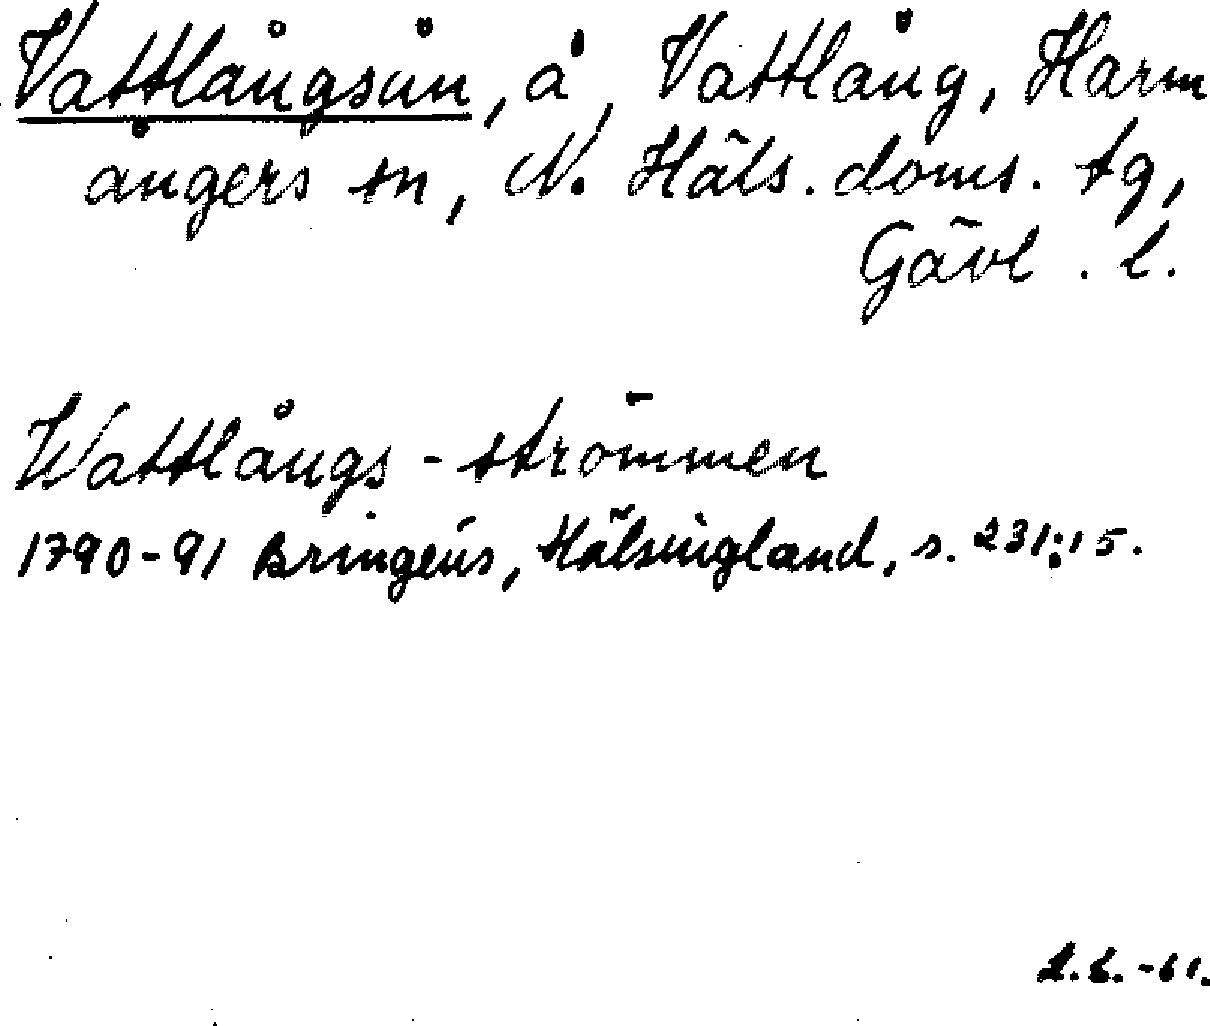 Vattlångsån, å, Vattlång, Harm
ångers sn, N. Häls. doms. tg,
Gävl. l.
Wattlångs-strömmen
1790-91 Bringéus, Hälsingland, s. 231:15.
L.L.-61.